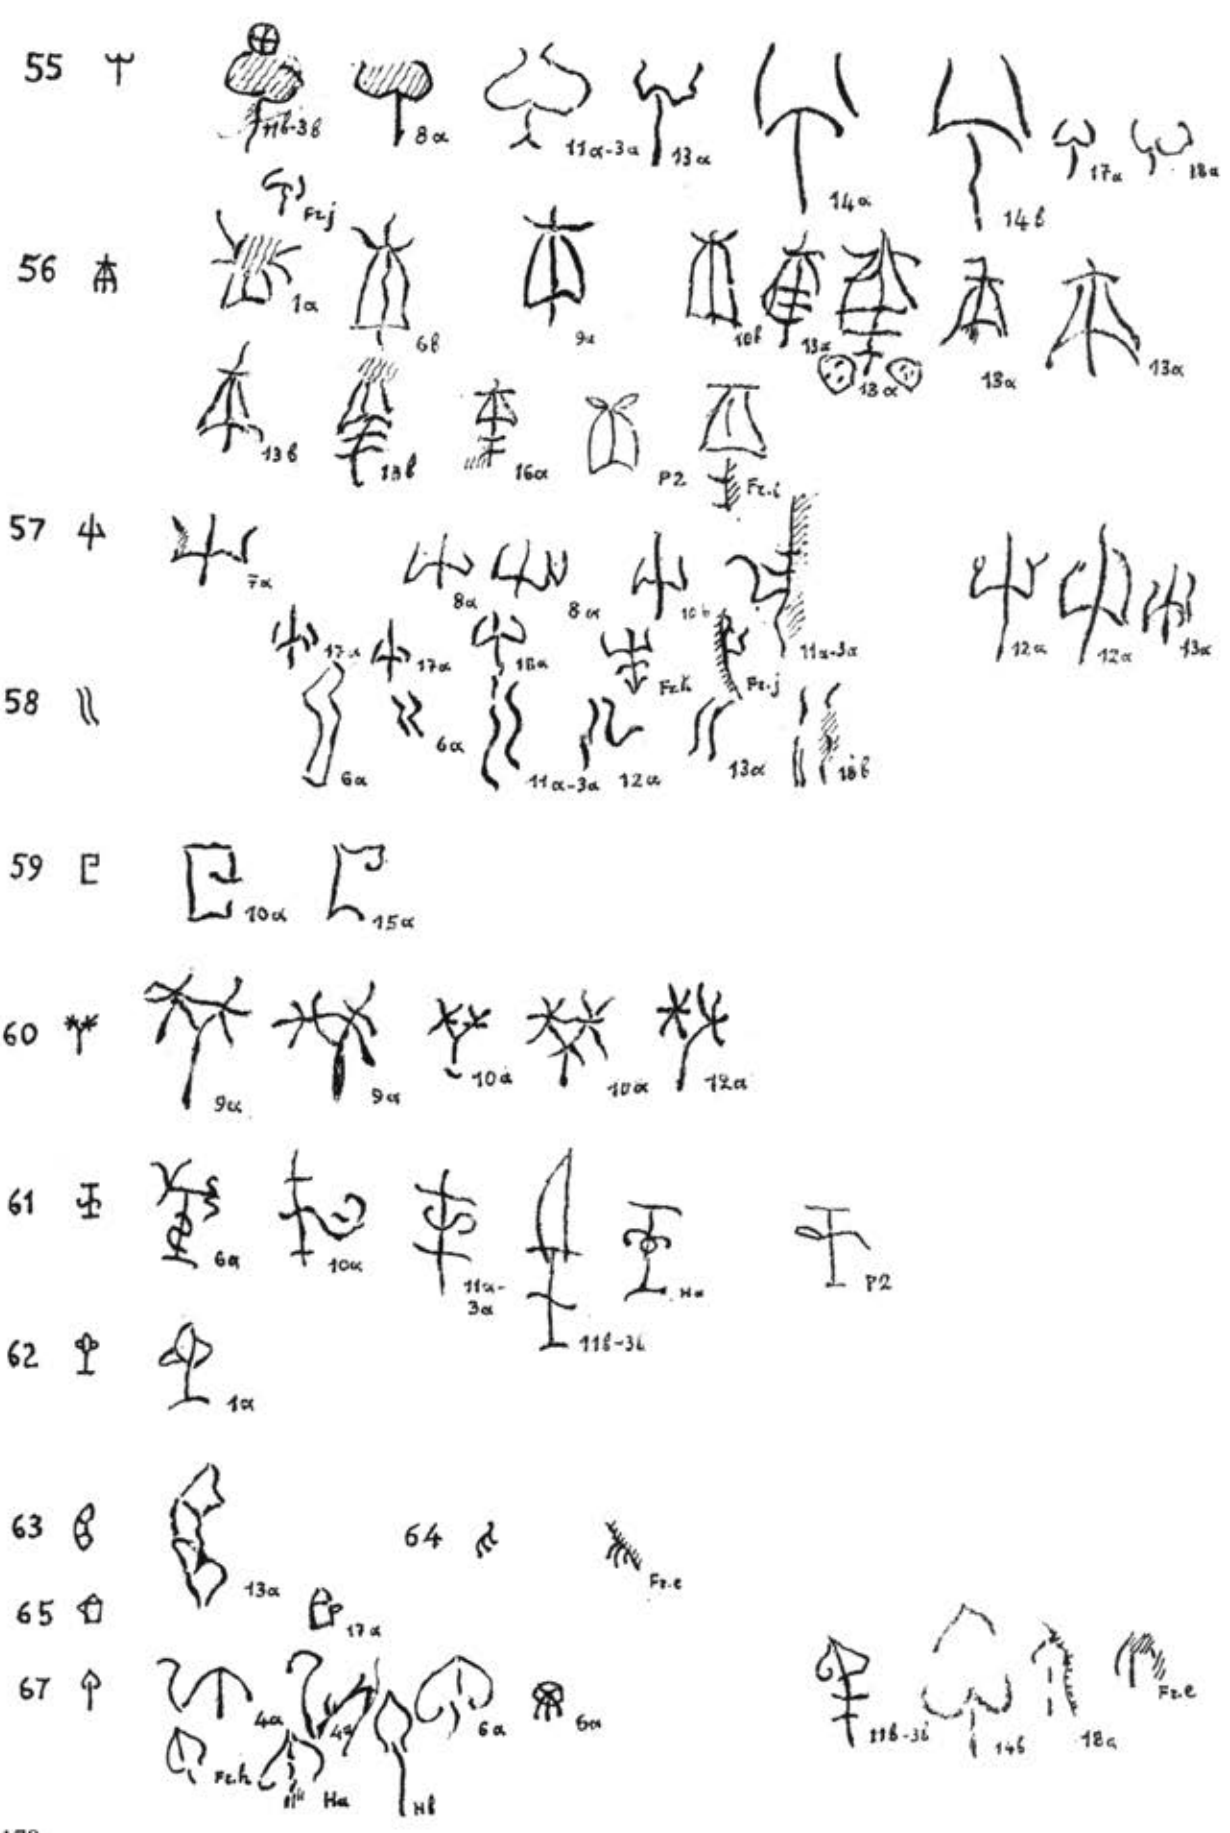 55 11b-3b 8a 11a-3a 13a 14a 14b 17a 18a
Fr.j
56 1a 6b 9a 10b 13a 13a 13a 13a
13b 13b 16a P2 Fr.i
57 7a 8a 8a 10b 11a-3a 12a 12a 13a
17a 17a 18a Fr.h Fr.j
58 6a 6a 11a-3a 12a 13a 18b
59 10a 15a
60 9a 9a 10a 10a 12a
61 6a 10a 11a-3a 11b-3b Ha P2
62 1a
63 13a 64 Fr.e
65 17a
67 4a 4a 6a 6a 11b-3b 14b 18a Fr.e
Fr.h Ha Hb